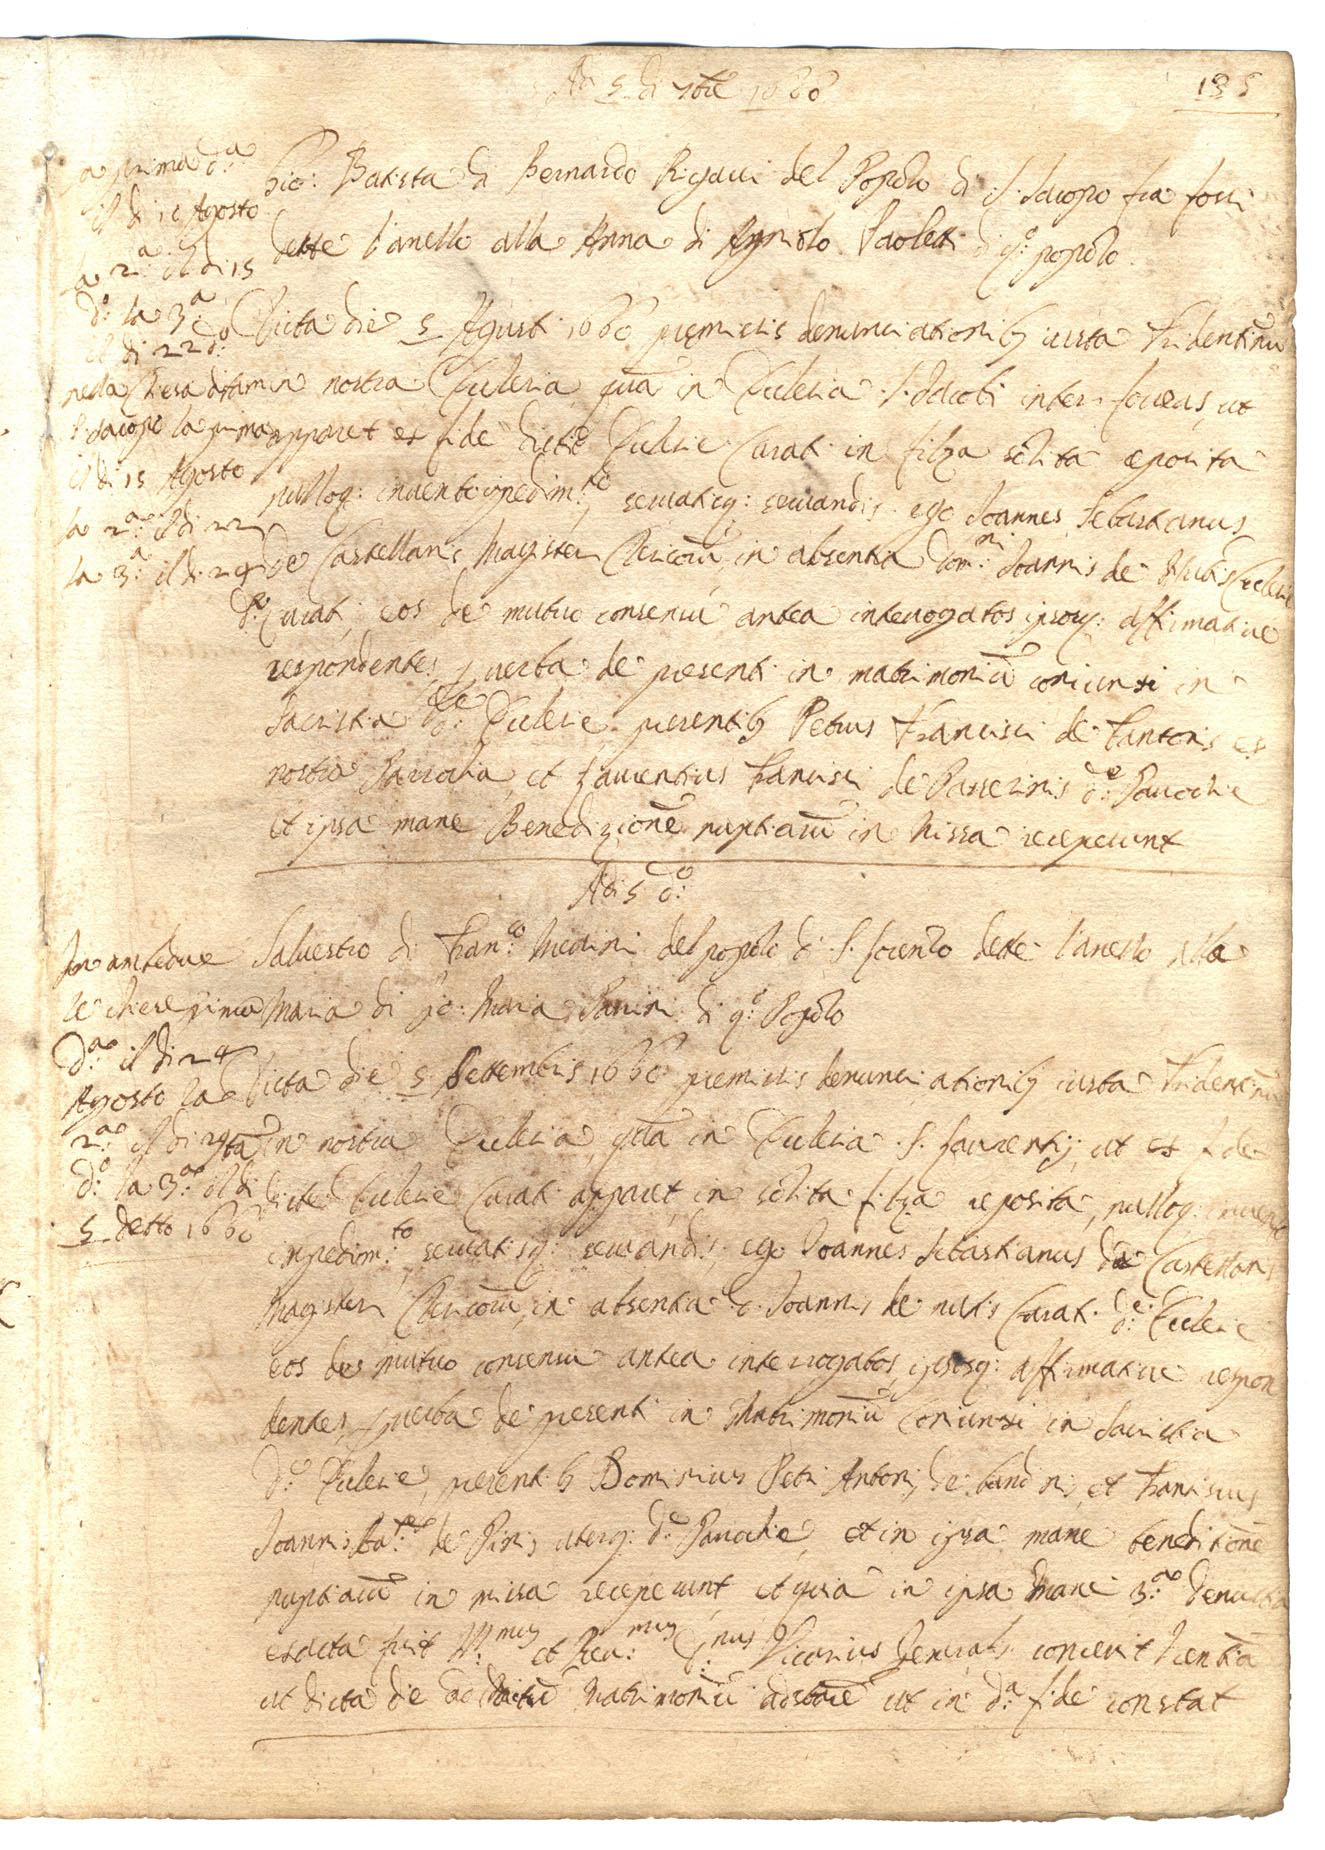 Adi 5 di 7bre 1660
135
la prima d.a
il di 10 Agosto
la 2.a il di 15
d.o la 3.a
il di 22 d.o
nella Chiesa di
S. Jacopo la prima
il di 15 Agosto
la 2.a il di 22
la 3.a il di 24
d.o
Gio: Batista di Bernardo Rigacci del Popolo di S. Jacopo fra fossi
dette l'anello alla Anna di Agniolo Paoletti di q.o popolo.
Dicta die 5 Agusti 1660 premissis denunciationib9 iusta Tridentinũ
tam in nostra Ecclesia, quã in Ecclesia S. Jacobi inter foveas, ut
apparet ex fide dictę Ecclesie Curati in filza solita reposita
nulloq: invento impedim.to, servatisq: servandis. ego Joannes Sebastianus
de Castellanis Magister Clericorũ, in absentia Dom.ni Joannis de Nutis Ecclesie
Curati, eos de mutuo consensu antea interrogatos ipsosq: affirmative
respondentes, p verba de presenti in matrimoniũ coniunsi in
Sacristia d.e Ecclesie presentib9 Petrus Francisci de Fantonis ex
nostra Parrochia, et Laurentius Francisci de Passerinis d.e Parochie
et ipsa mane Benedizionẽ nuptiarũ in Missa receperunt
Adi 5 d.o
In ambedue
le chiese prima
d.a il di 24
Agosto la
2.a il di 29
d.o la 3.a il di
5 detto 1660
Salvestro di Fran.co Mearini del popolo di S. Lorenzo dette l'anello alla
Maria di Gio: Maria Panini di q.o Popolo
Dicta die 5 Settembris 1660 premissis denunciationib9 iusta Tridentinũ
tã in nostra Ecclesia, quã in Ecclesia S. Laurentij, ut ex fide
dicte Ecclesie Curati apparet, in solita filza reposita, nulloq: invento
inpedim.to, servatisq: servandis, ego Joannes Sebastianus de Castellanis
Magister Clericorũ, in absentia D. Joannis de nutis Curati d.e Ecclesie
eos de mutuo consensu antea interrogatos, ipsosq: affirmative respon
dentes, p verba de presenti in Matrimoniũ coniunsi in Sacristia
d.e Ecclesie, presentib9 Dominicus Petri Antonij de bandinis, et Franciscus
Joannis Ba.ttę de Pinis uterq: d.e Parochie, et in ipsa mane beneditionẽ
nuptiarũ in missa receperunt, et quia in ipsa mane 3.a denuntia
exacta fuit Ill.mus et Reu.mus D.nus Vicarius Generalis concessit licentiã
ut dicta die ad dictũ Matrimoniũ ut in d.a fide constat